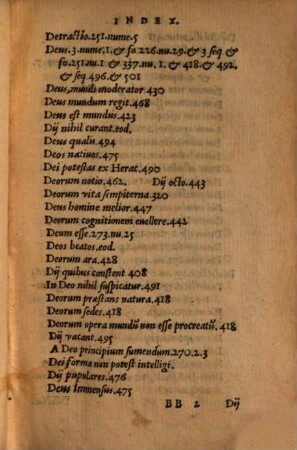 INDEX.
Detractio.251.nume.5
Deus.3.nume.1.& fo.226.nu.29.& 3 seq &
fo.251.nu.1 & 337.nu.1.& 418.& 492.
& seq 496.& 501
Deus, mundi moderator 430
Deus mundum regit.468
Deus est mundus.423
Dij nihil curant.eod.
Deus qualis.494
Deos natiuos.475
Dei potestas ex Herac.490
Deorum notio.462. Dij octo.443
Deorum vita sempiterna.320
Deus homine melior.447
Deorum cognitionem euellere.442
Deum esse.273.nu.25
Deos beatos.eod.
Deorum ara.428
Dij quibus constent 408
In Deo nihil suspicatur.491
Deorum præstans natura.418
Deorum sedes.418
Deorum opera mundū non esse procreatū.418
Dij vacant.495
A Deo principium sumendum.270.2.3
Dei forma non potest intelligi.
Dij pupulares.476
Deus immensus.475
BB 2 Dij